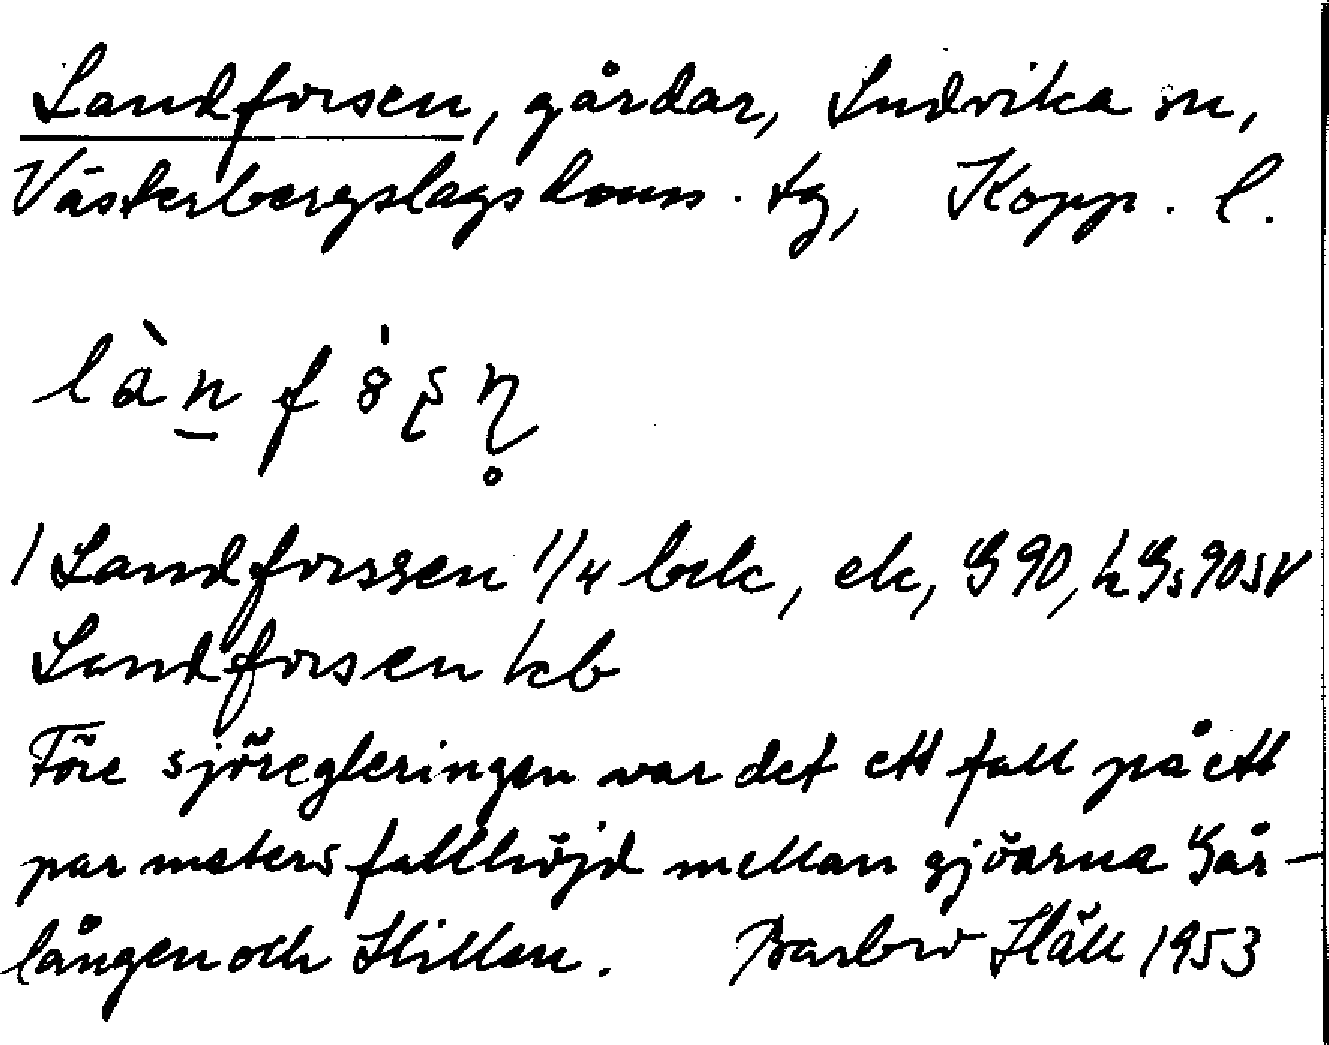 Landforsen, gårdar, Ludvika sn,
Västerbergslags doms. tg, Kopp. l.
lànfȯṣṇ
/ Landforssen 1/4 bek, ek, G 90,
Landforsen kb
Före sjöregleringen var det ett fall på ett
par meters fallhöjd mellan sjöarna Går-
lången och Hillen. Barbro Häll 1953